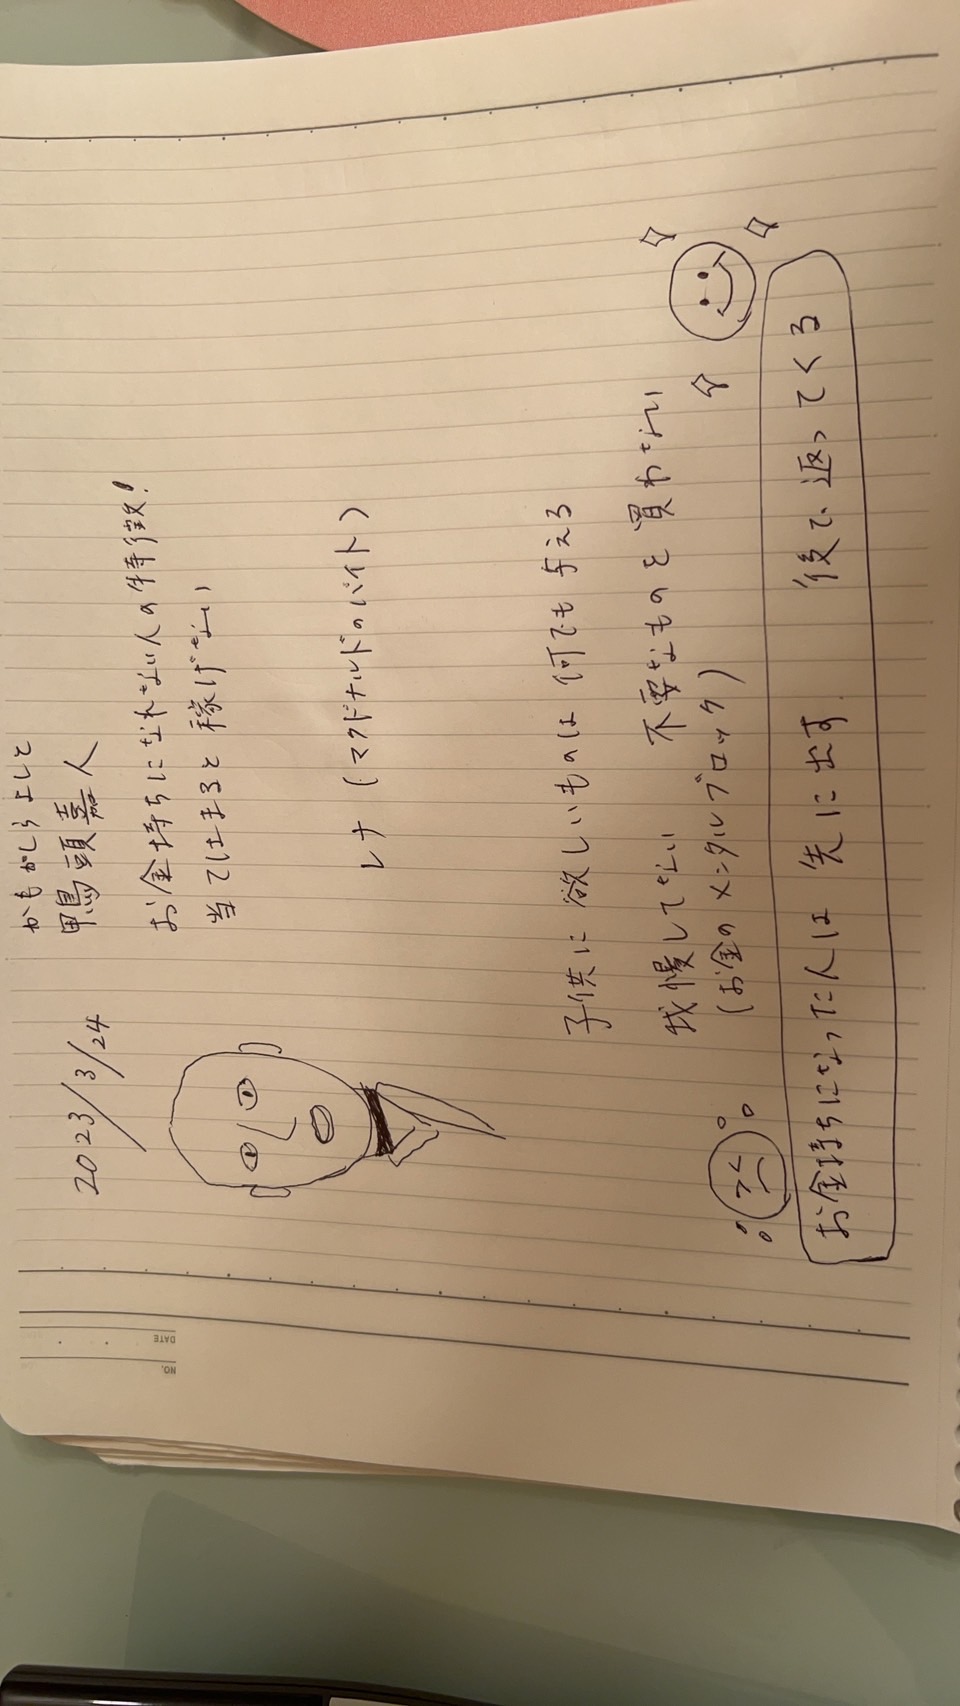 かもがしら よしと
2023/3/24 鴨頭嘉人
お金持ちになれない人の特徴!
当てはまると 稼げない
レナ (マクドナルドのバイト)
子供に 欲しいものは 何でも 与える
我慢してない 不要なものを 買わせない
(お金のメンタルブロック)
お金持ちになった人は 先に出す 後で 返ってくる
NO.
DATE